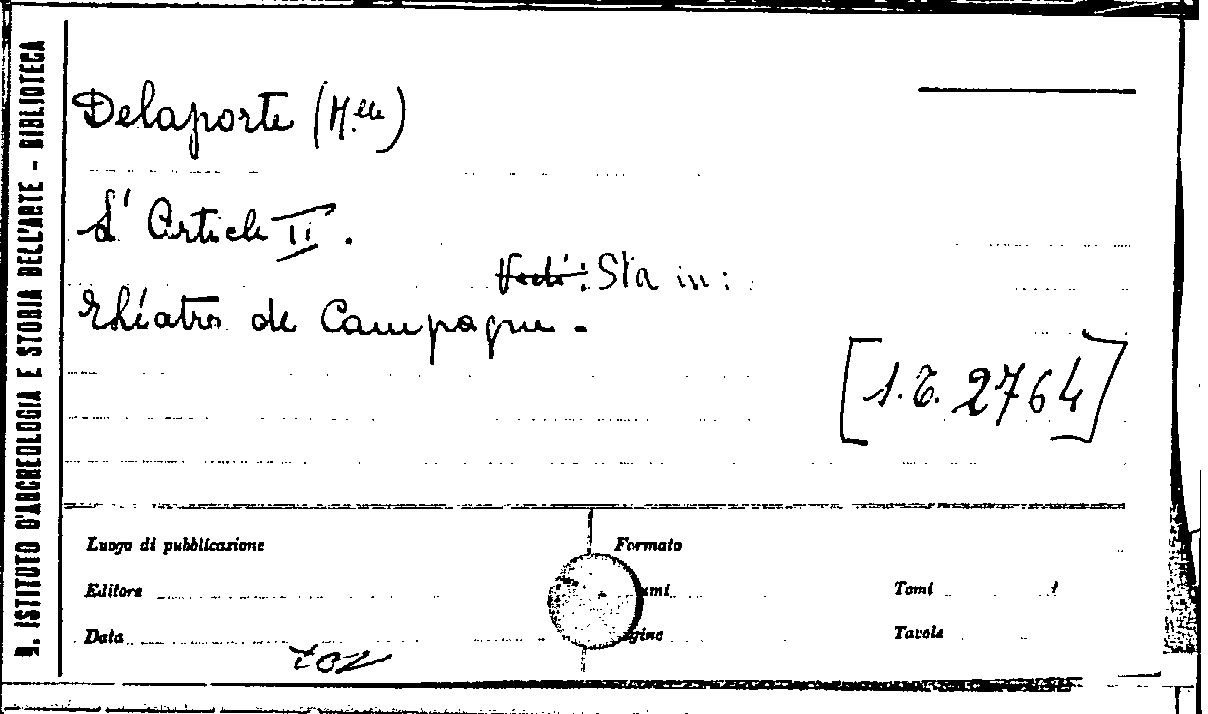 R. ISTITUTO D'ARCHEOLOGIA E STORIA DELL'ARTE - BIBLIOTECA
Delaporte (M.elle)
L' Article II.
Vedi: Sta in:
Théatre de Campagne -
[1.T. 2764]
Luogo di pubblicazione
Formato
Editore
umi
Tomi
Data
gine
Tavole
702